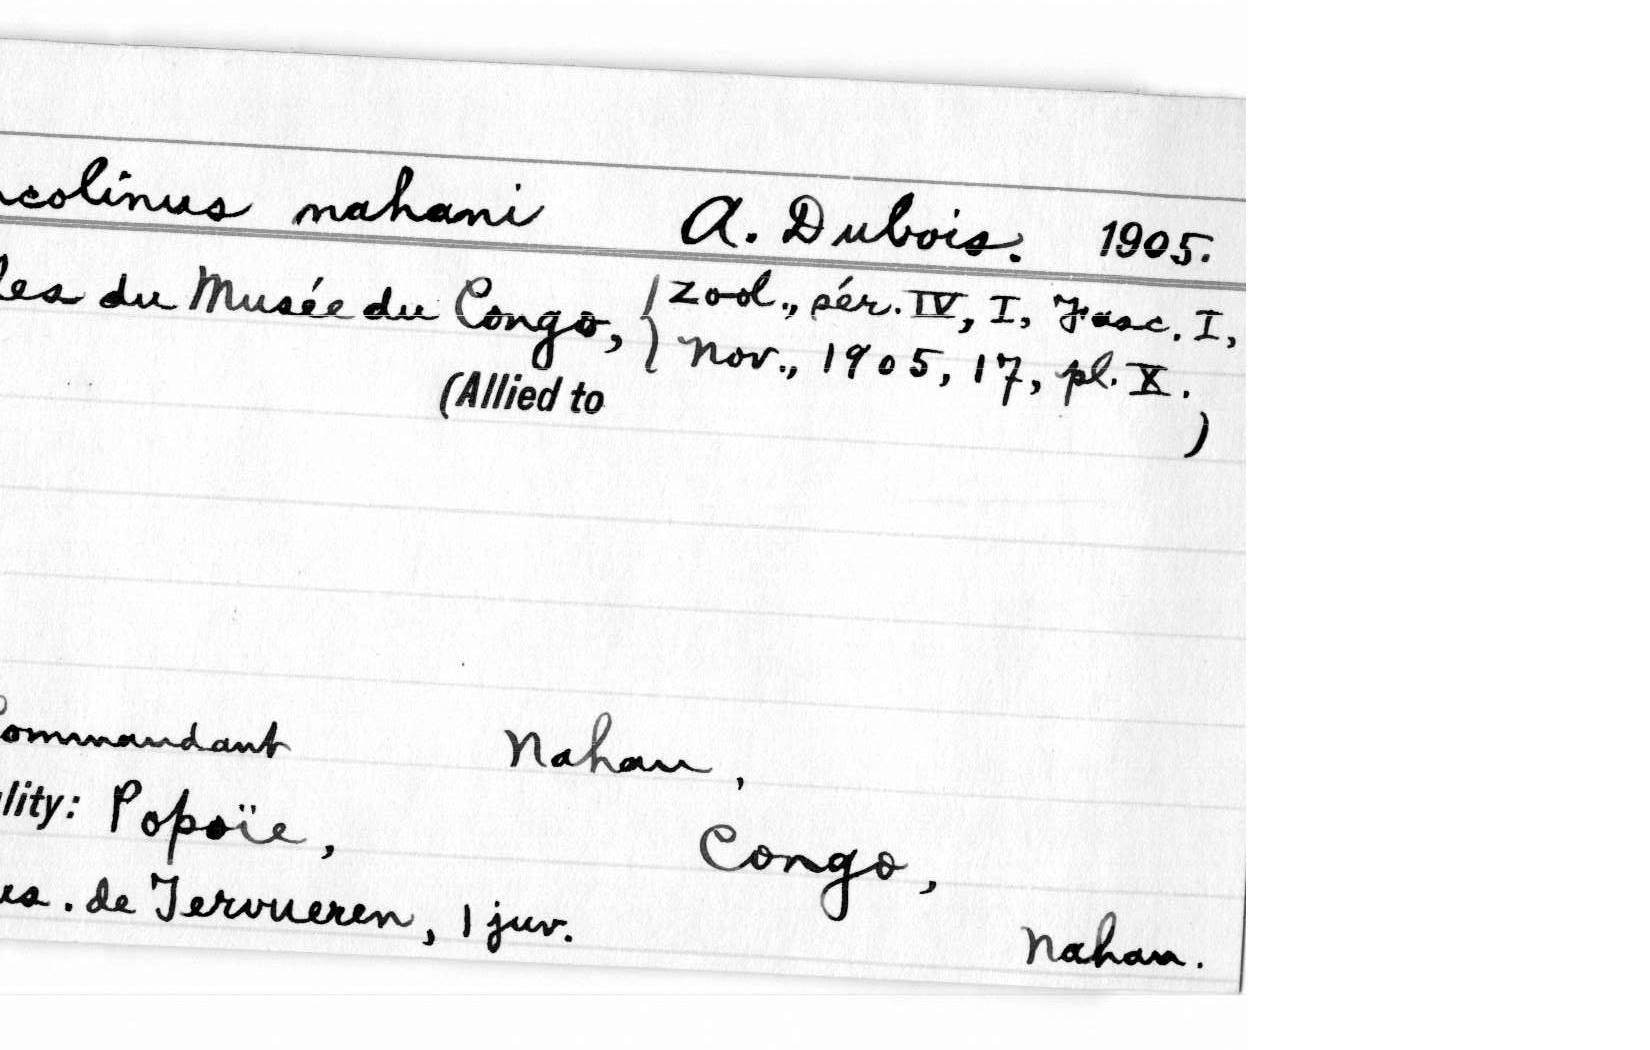 colinus nahani A. Dubois. 1905.
les du Musée du Congo, { Zool., sér. IV, I, Fasc. I,
Nov., 1905, 17, pl. X.
(Allied to )
Commandant Nahan,
lity: Popoïe, Congo,
us. de Tervueren, 1 juv. Nahan.